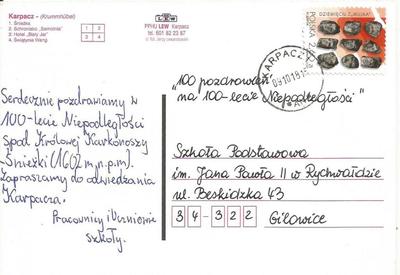 Karpacz - (Krummhübel)
1. Śnieżka
2. Schronisko „Samotnia”
3. Hotel „Biały Jar”
4. Świątynia Wang
1 2
3 4
LEW
PPHU LEW Karpacz
tel. 601 82 23 87
© fot. Jerzy Lewandowski
POLSKA
KARPACZ
09.10.18
"100 pozdrowień
na 100-lecie Niepodległości"
Serdecznie pozdrawiamy w
100-lecie Niepodległości
spod Królowej Karkonoszy
- Śnieżki (1602 m.n.p.m).
Zapraszamy do odwiedzania
Karpacza.
Pracownicy i Uczniowie
szkoły.
Szkoła Podstawowa
im. Jana Pawła II w Rychwałdzie
ul. Beskidzka 43
34-322 Gilowice